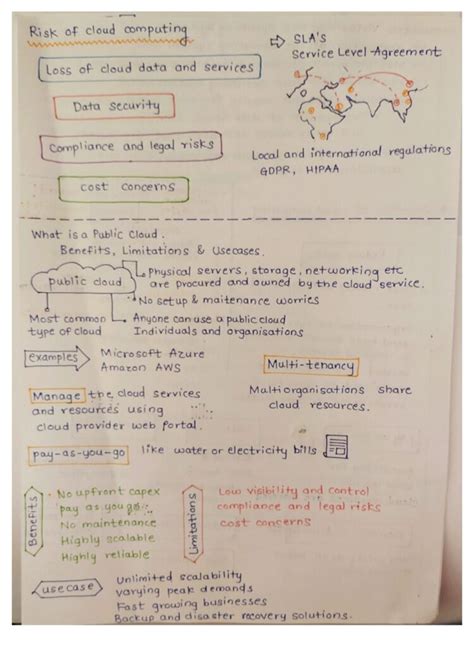 Risk of cloud computing
Loss of cloud data and services
Data security
Compliance and legal risks
cost concerns
SLA's
Service Level Agreement
Local and international regulations
GDPR, HIPAA
What is a Public Cloud.
Benefits, Limitations & Usecases.
public cloud
physical servers, storage, networking etc
are procured and owned by the cloud service.
No setup & maitenance worries
Most common
type of cloud
Anyone can use a public cloud
Individuals and organisations
examples
Microsoft Azure
Amazon AWS
Multi-tenancy
Multi organisations share
cloud resources.
Manage the cloud services
and resources using
cloud provider web portal.
pay-as-you-go like water or electricity bills
Benefits
No upfront capex
pay as you go
No maintenance
Highly scalable
Highly reliable
Limitations
Low visibility and control
compliance and legal risks
cost concerns
use case
Unlimited scalability
varying peak demands
Fast growing businesses
Backup and disaster recovery solutions.